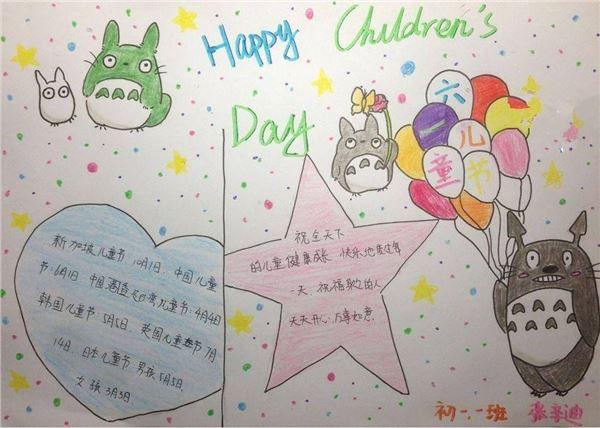 Happy Children's
Day
六
一儿
童节
新加坡儿童节 10月1日. 中国儿童
节:6月1日 中国香港和台湾儿童节:4月4日
韩国儿童节:5月5日. 英国儿童节7月
14日. 日本儿童节 男孩5月5日.
女孩3月3日
祝全天下
的儿童健康成长 快乐地度过每
一天. 祝福
的人
天天开心.万事如意.
初一.一班